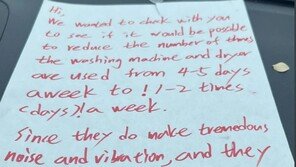 Hi,
We wanted to check with you
to see if it would be possible
to reduce the number of times
the washing machine and dryer
are used from 4-5 days
a week to ! 1-2 times
(days)! a week.
Since they do make tremedous
noise and vibration, and they